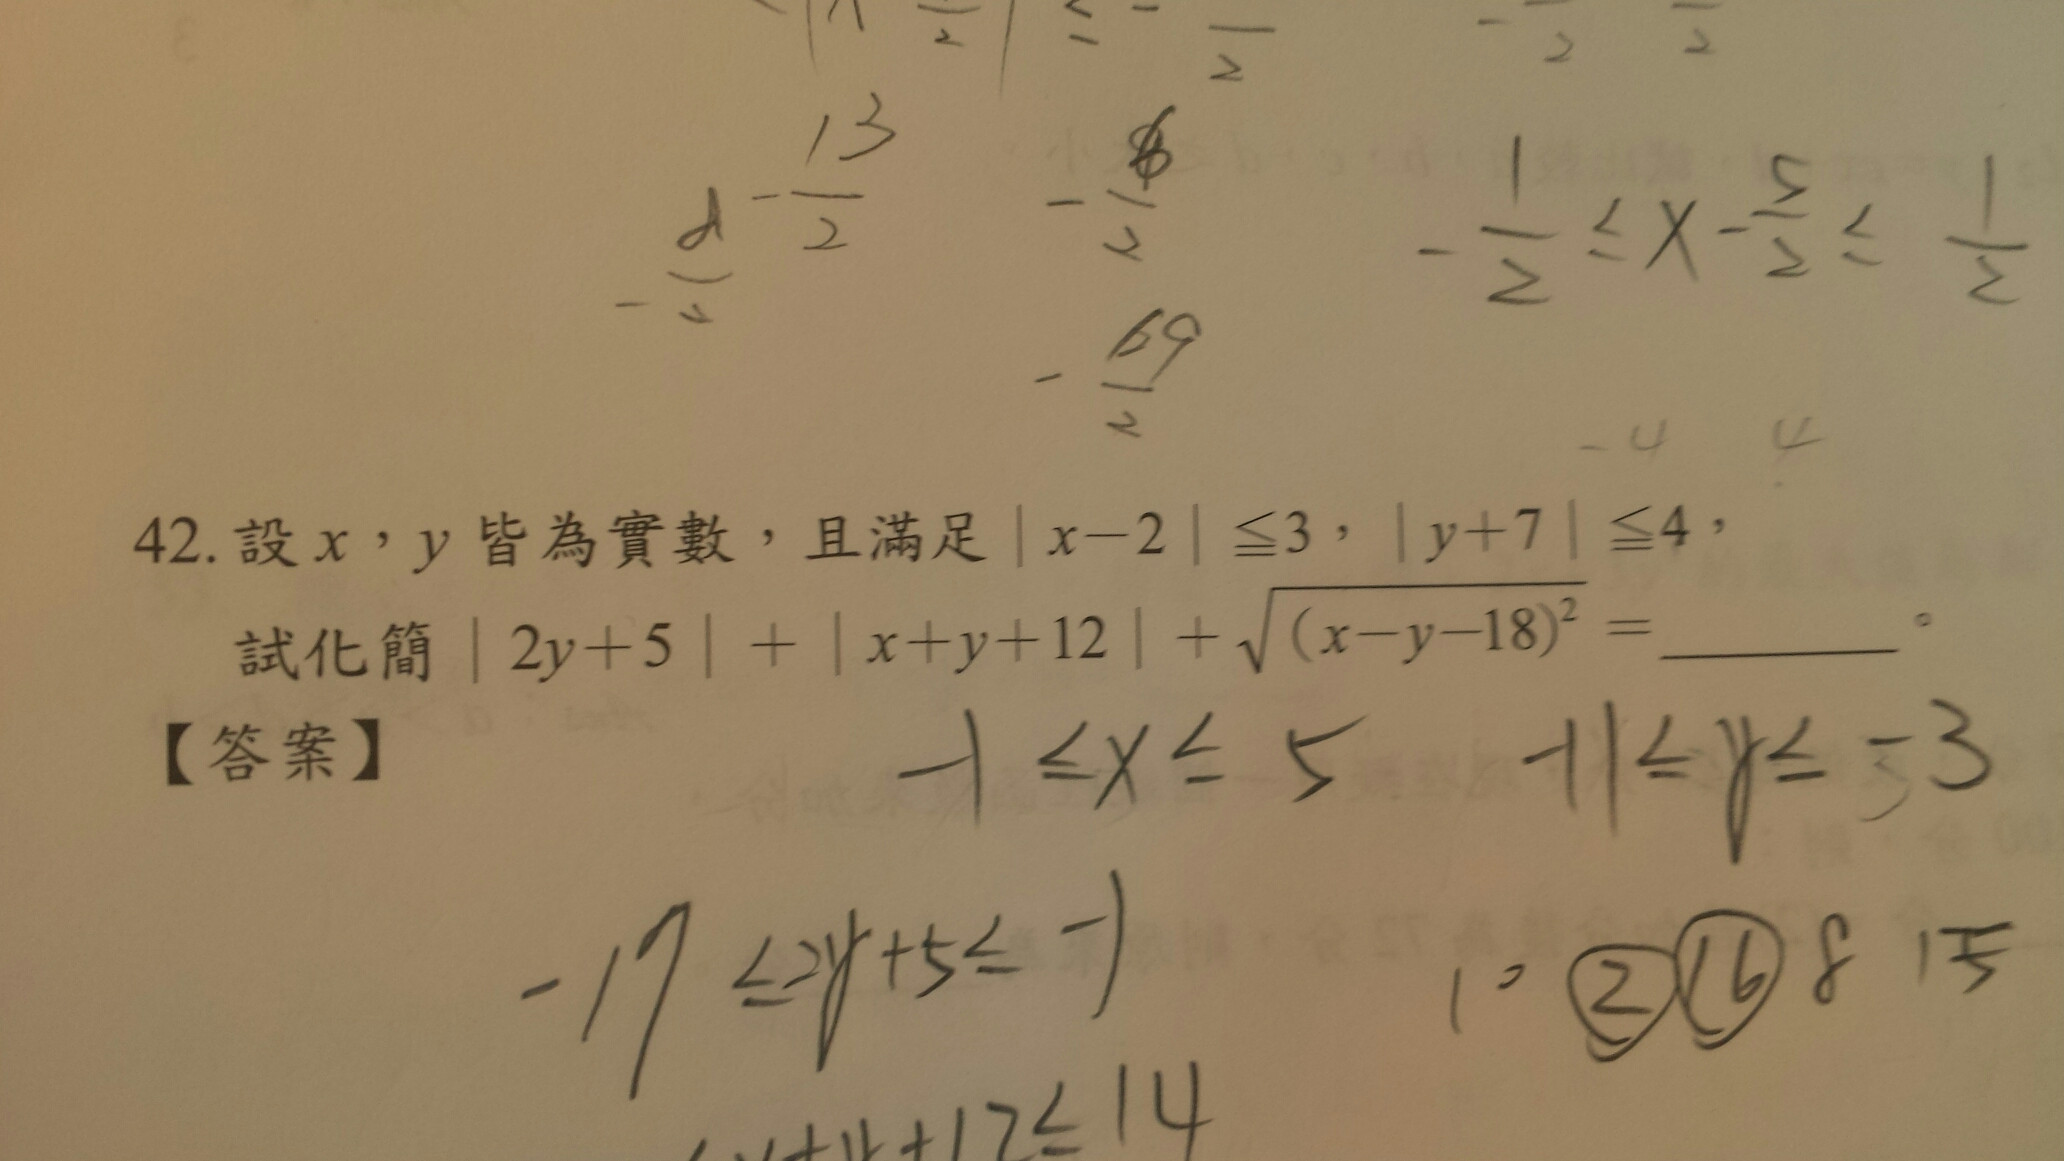 -13/2
-69/2
-1/2 ≤ x - 5/2 ≤ 1/2
-4 4
42. 設 x,y 皆為實數,且滿足|x-2|≦3,|y+7|≦4,
試化簡|2y+5|+|x+y+12|+√(x-y-18)² = ______。
【答案】
-1 ≤ x ≤ 5 -11 ≤ y ≤ -3
-17 ≤ 2y+5 ≤ -1
2 16 8 15
x+y+12 ≤ 14